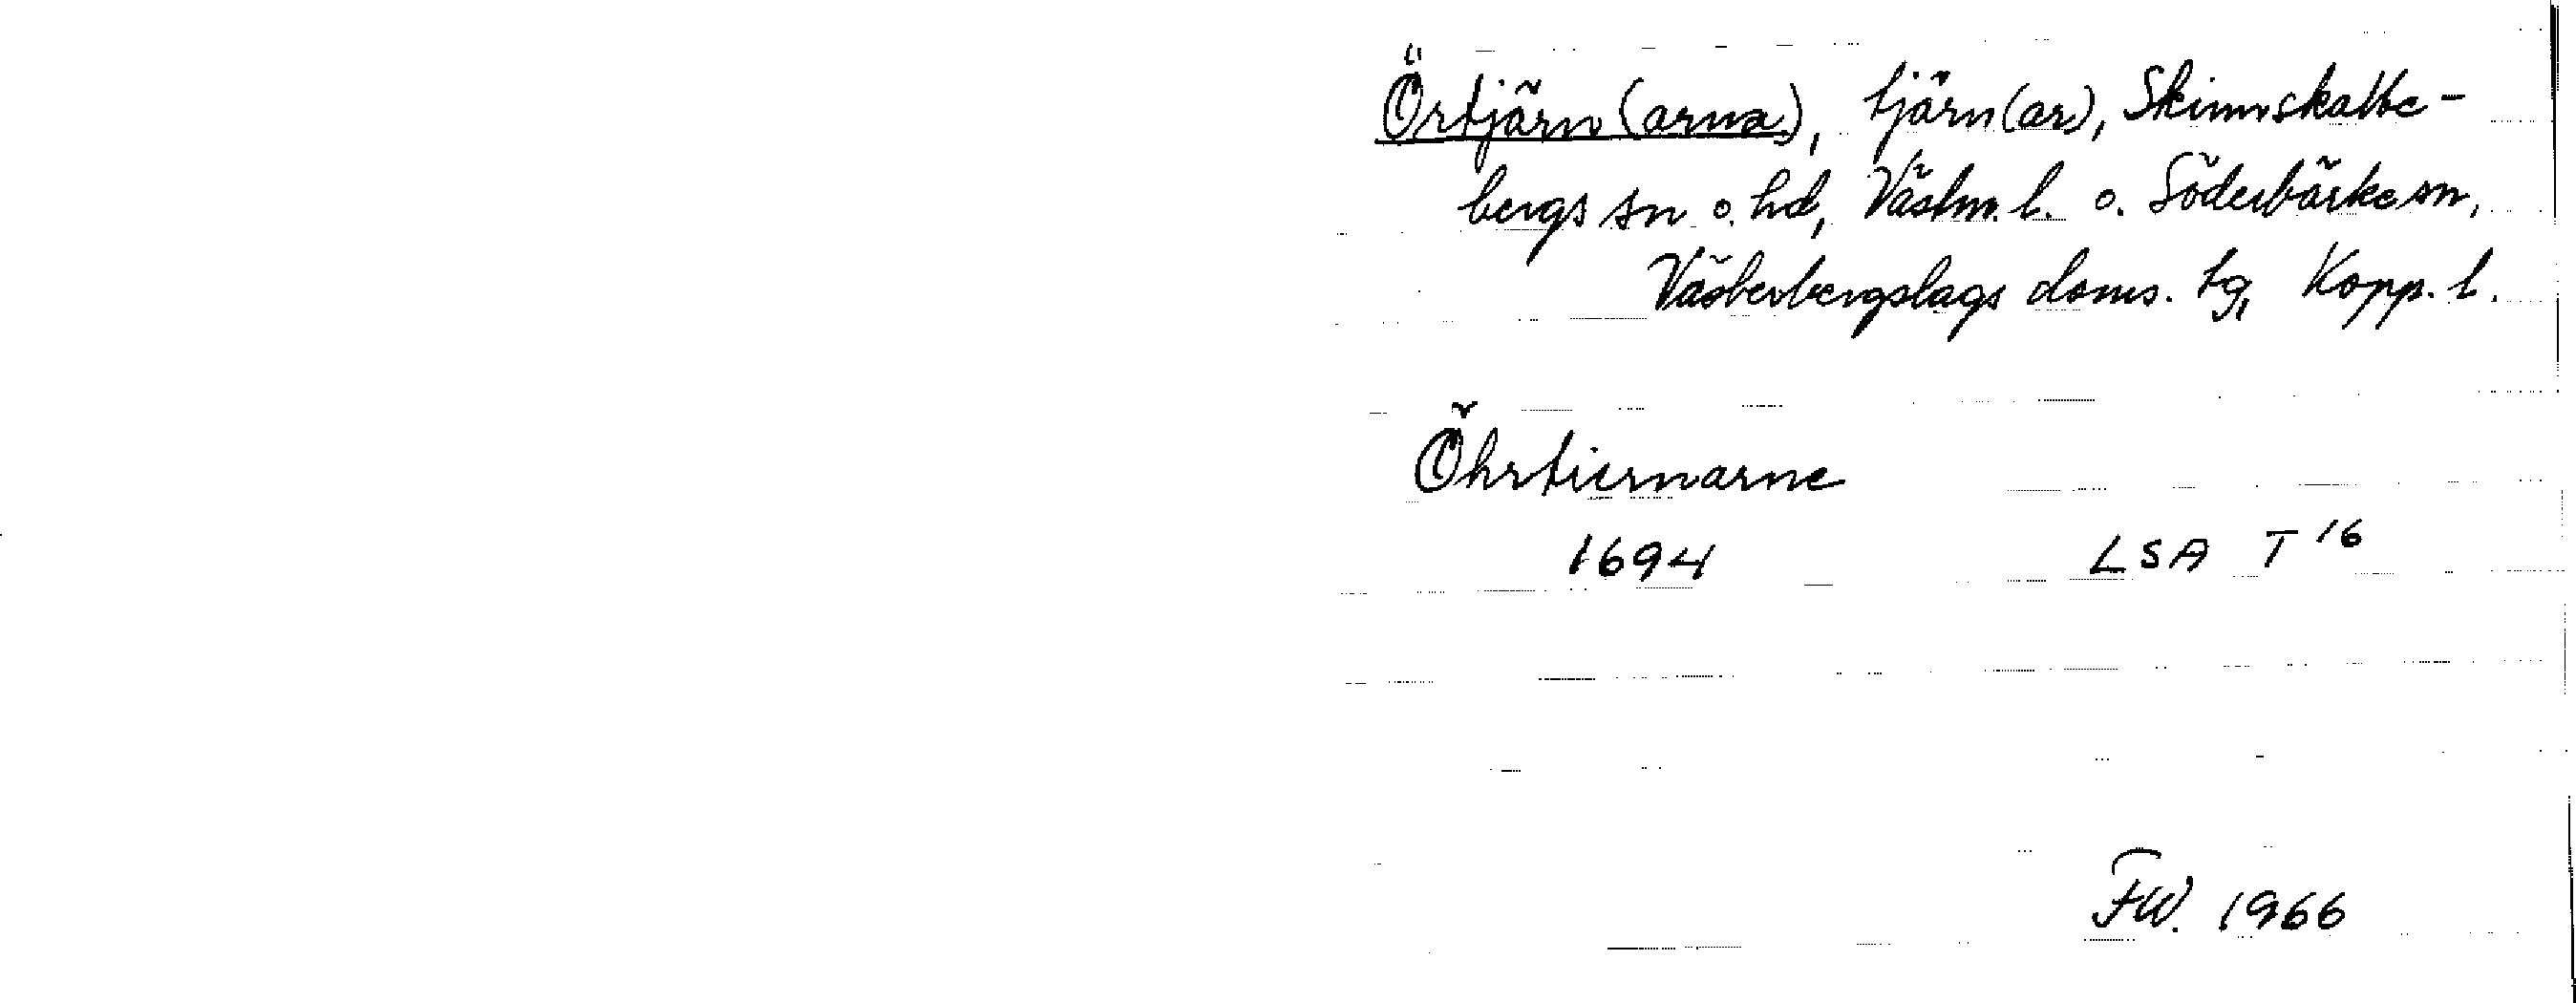 Örtjärn(arna), tjärn(ar), Skinnskatte-
bergs sn o. hd, Västm. l. o. Söderbärke sn,
Västerbergslags doms. tg, Kopp. l.
Öhrtiernarne
1694 LSA T 16
FW. 1966